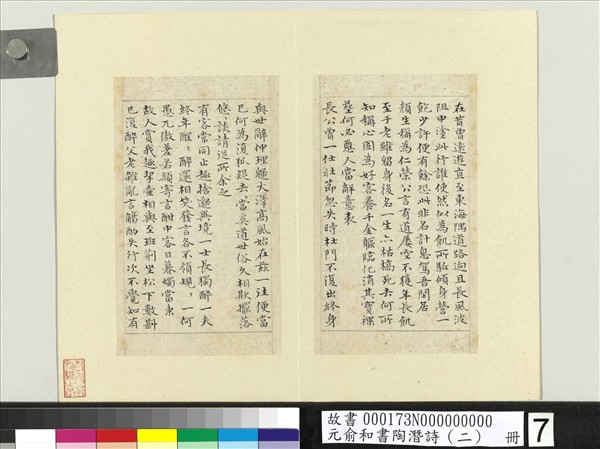 在昔曾遠遊直至東海隅道路迥且長風波
阻中塗此行誰使然似為飢所驅傾身營一
飽少許便有餘恐此非名計息駕歸閒居
顏生稱為仁榮公言有道屢空不獲年長飢
至于老雖留身後名一生亦枯槁死去何所
知稱心固為好客養千金軀臨化消其寶裸
葬何必惡人當解意表
長公曾一仕壯節忽失時杜門不復出終身
與世辭仲理歸大澤高風始在茲一往便當
已何為復狐疑去〻當奚道世俗久相欺擺落
悠〻談請從所余之
有客常同止趣捨邈異境一士長獨醉一夫
終年醒〻醉還相笑發言各不領規〻一何
愚兀傲差若穎寄言酣中客日暮燭當秉
故人賞我趣挈壺相與至班荊坐松下數斟
已復醉父老雜亂言觴酌失行次不覺知有
故書 000173N000000000
元俞和書陶潛詩(二) 冊
7